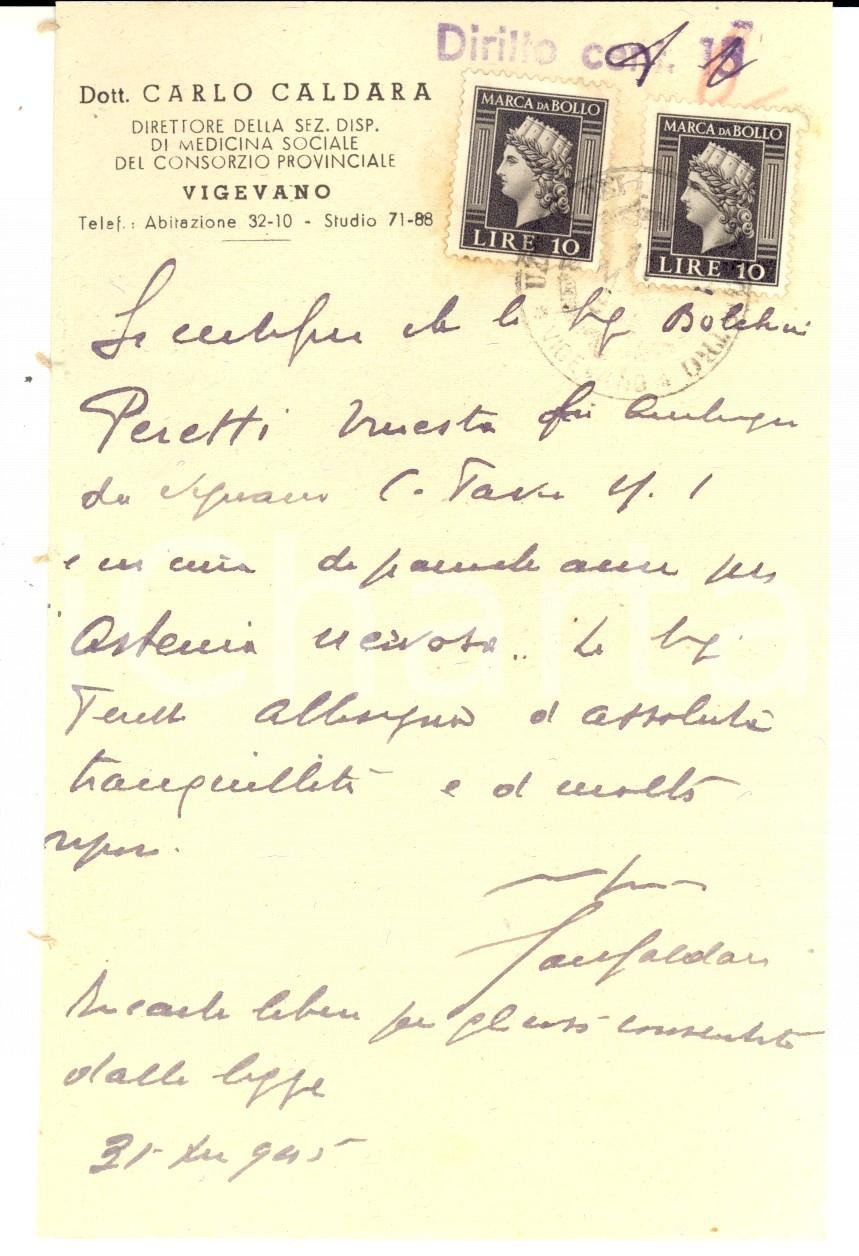 Diritto cent.
Dott. CARLO CALDARA
DIRETTORE DELLA SEZ. DISP.
DI MEDICINA SOCIALE
DEL CONSORZIO PROVINCIALE
VIGEVANO
Telef.: Abitazione 32-10 - Studio 71-88
MARCA DA BOLLO
LIRE 10
MARCA DA BOLLO
LIRE 10
VIGEVANO
Si certifica che la Sig
Peretti
da C. N. 1
e in cura da parecchi anni per
Astenia nervosa. La Sig
Peretti abbisogna di assoluta
tranquillità e di molto
riposo.
In carta libera per gli usi consentiti
dalla legge
31
iCharta